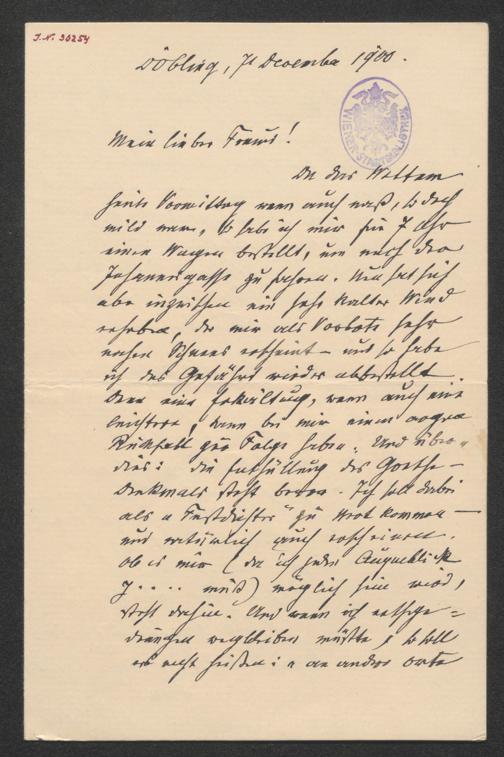 J.N. 30254
Döbling, 7t December 1900.
WIENER STADTBIBLIOTHEK
Mein lieber Freund!
Da das Wetter
heute Vormittag wenn auch naß, so doch
mild war, so habe ich mir für 7 Uhr
einen Wagen bestellt, um nach der
Johannesgasse zu fahren. Nun hat sich
aber inzwischen ein sehr kalter Wind
erhoben, der mir als Vorbote sehr
nahen Schnees erscheint – und so habe
ich das Gefährt wieder abbestellt.
Denn eine Erkältung, wenn auch eine
leichtere, kann bei mir einen argen
Rückfall zur Folge haben. Und über-
dies: die Enthüllung des Goethe-
Denkmals steht bevor. Ich soll dabei
als „Festdichter" zu Wort kommen –
und natürlich auch erscheinen.
Ob es mir (da ich jeden Augenblick
J.... muß) möglich sein wird,
steht dahin. Und wenn ich
wegbleiben müßte, so soll
es nicht heißen: „an andern Orte